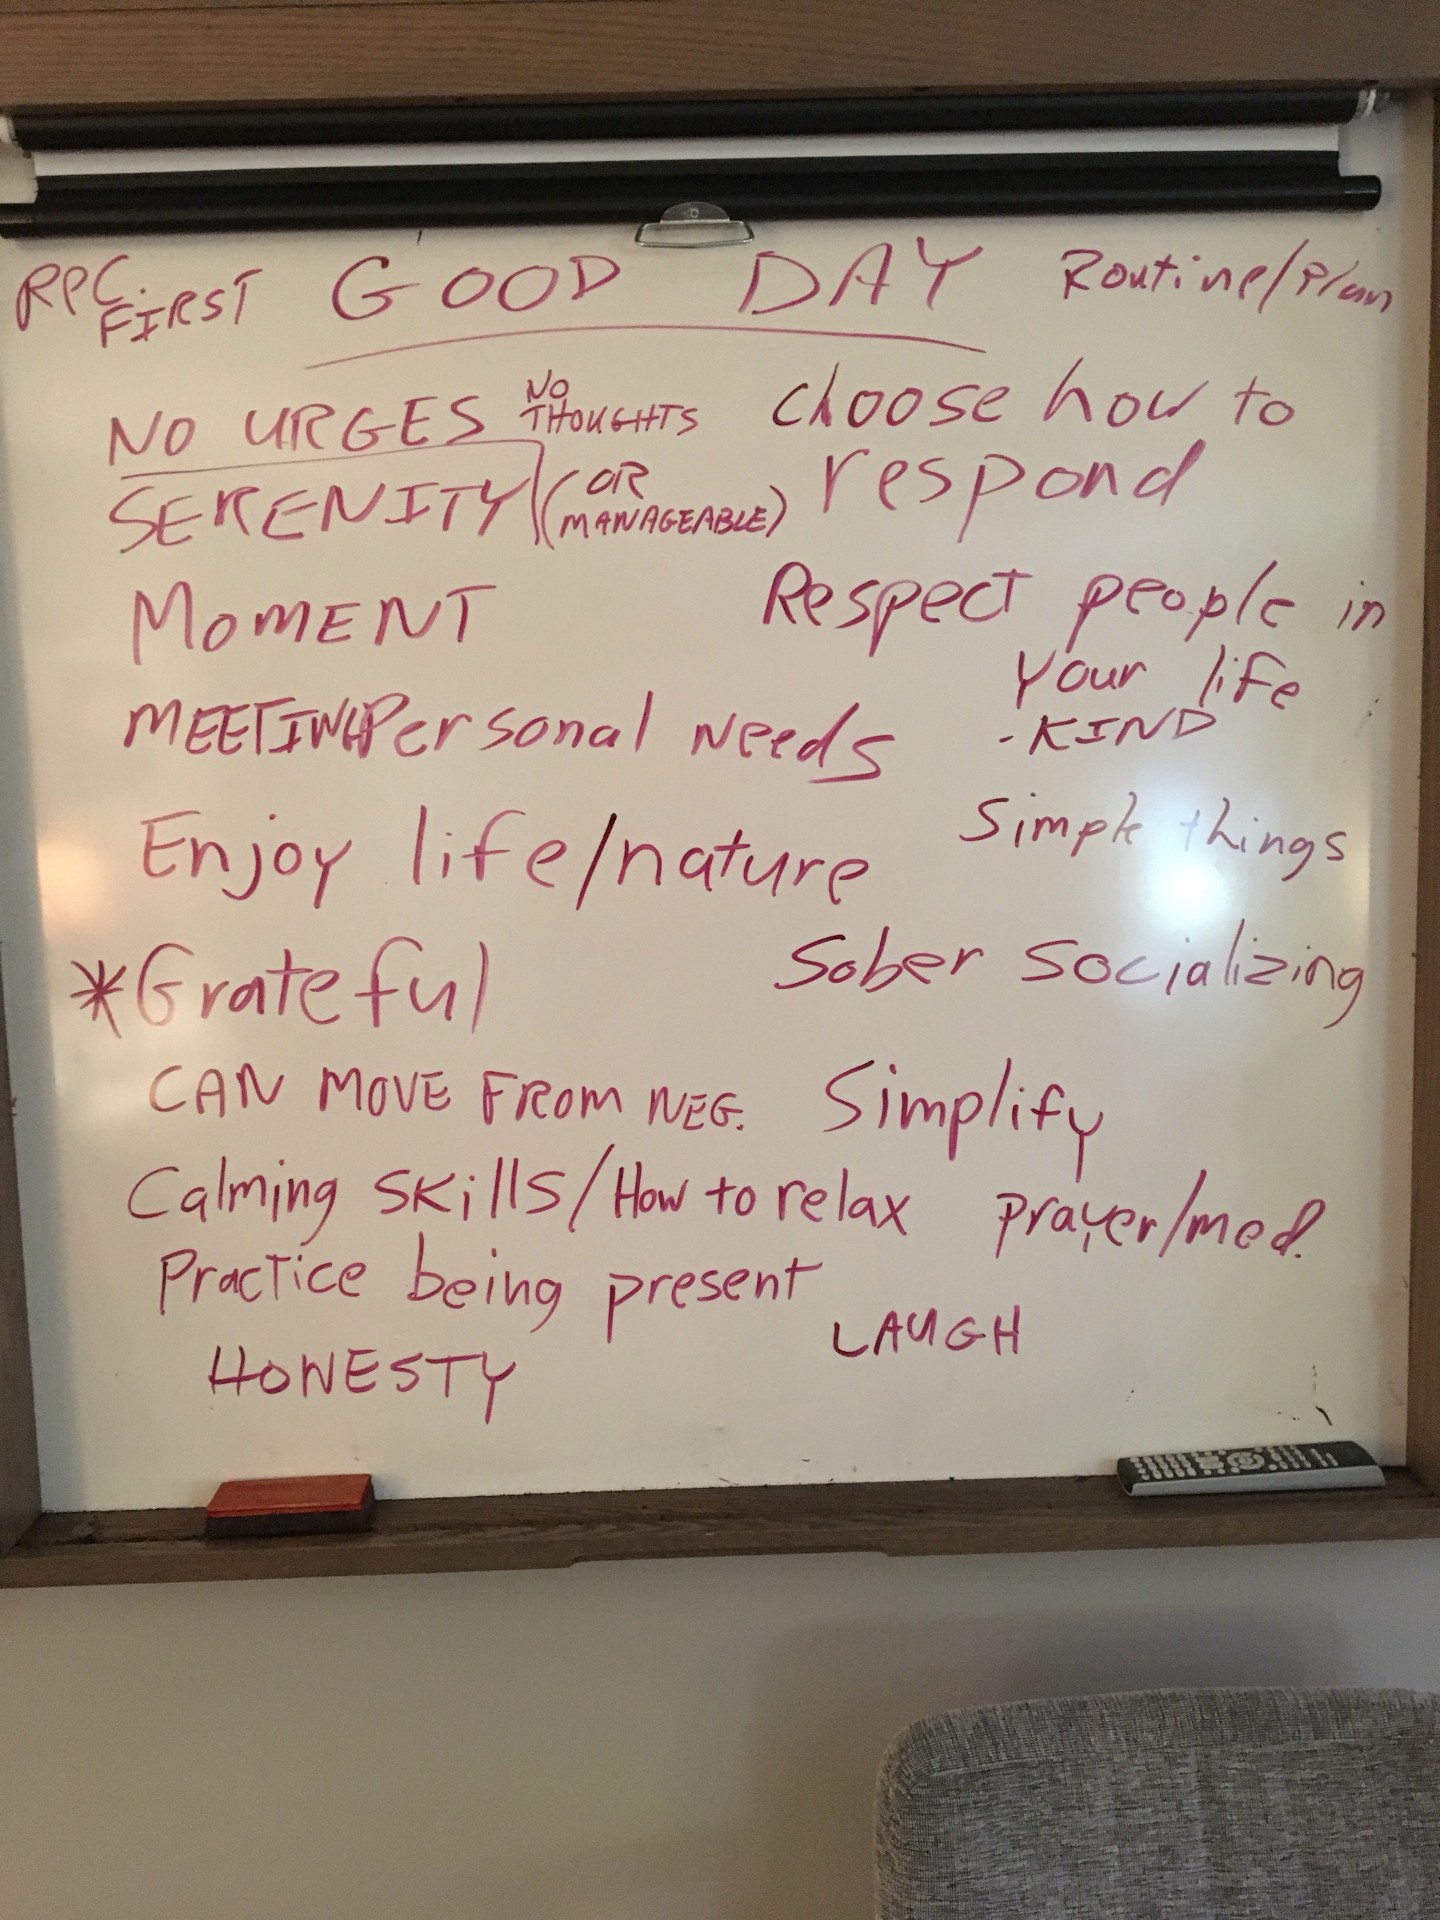 REC. FIRST GOOD DAY Routine/Plan
NO URGES NO THOUGHTS
SERENITY (OR MANAGEABLE)
choose how to
respond
MOMENT
Respect people in
your life
-KIND
MEETING Personal Needs
Enjoy life/nature
Simple things
*Grateful
Sober socializing
CAN MOVE FROM NEG.
Simplify
Calming skills/How to relax
prayer/med.
Practice being present
LAUGH
HONESTY